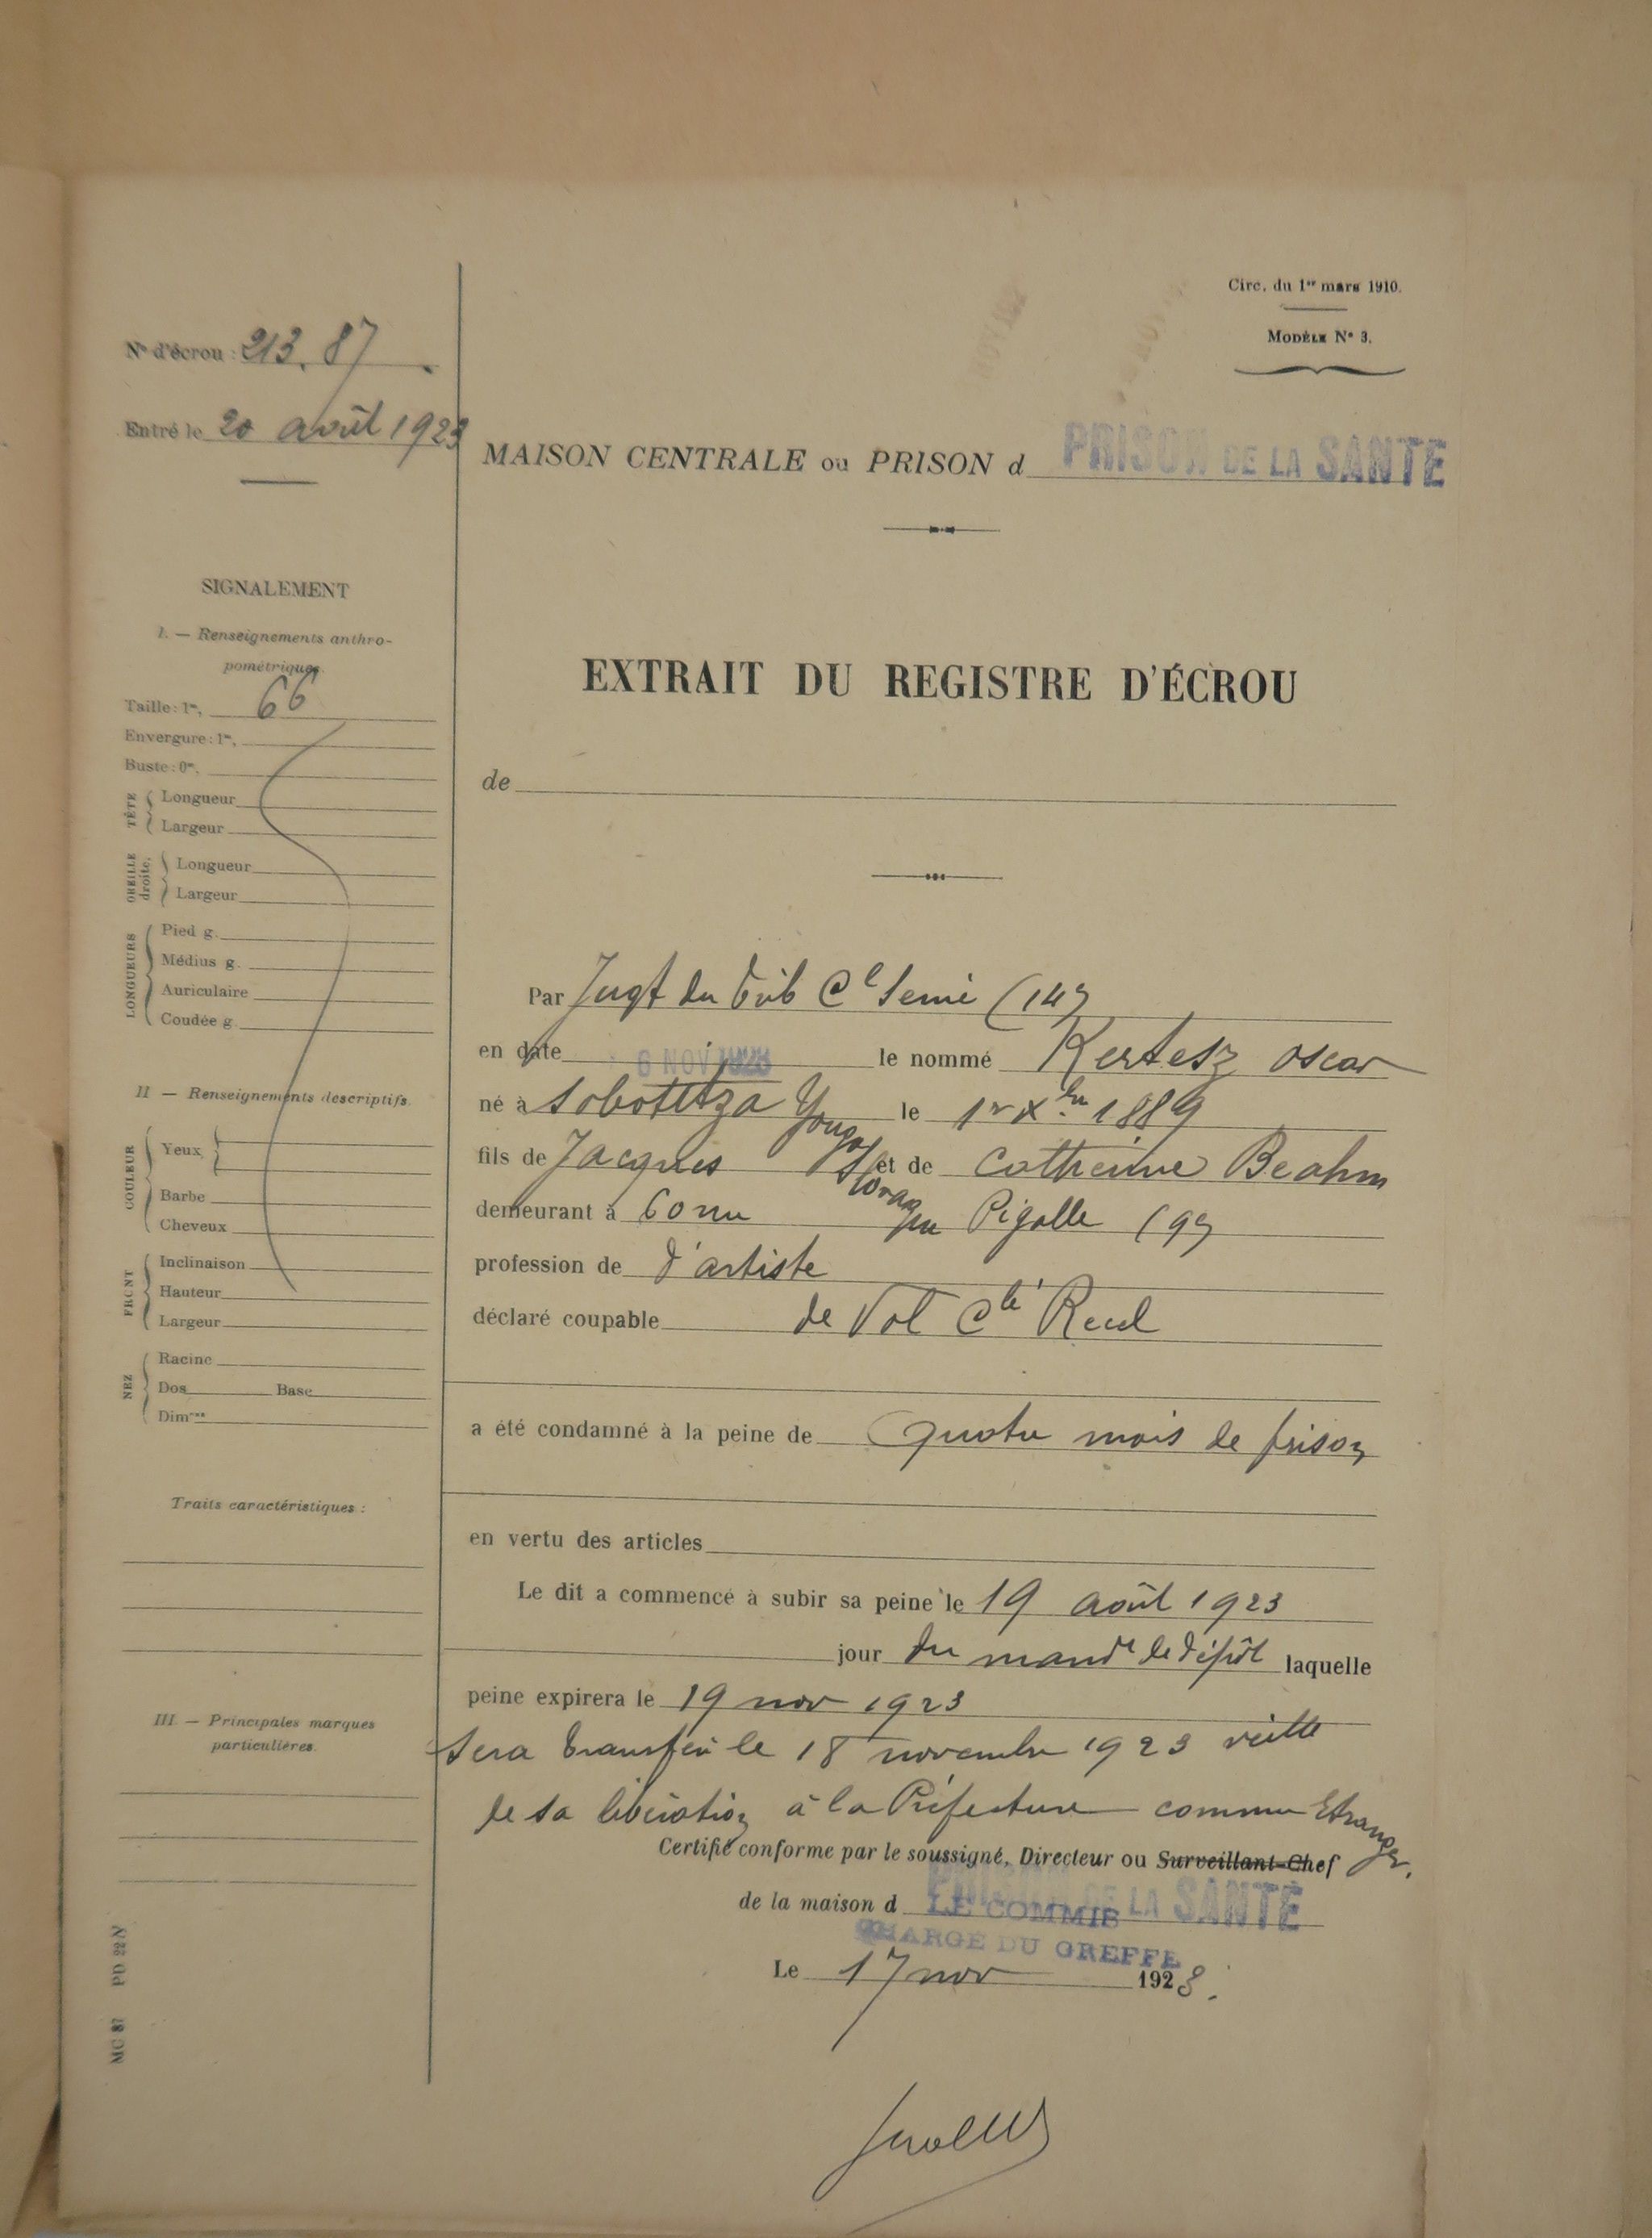 Circ. du 1er mars 1910.
MODÈLE N° 3.
N° d'écrou : 213.87
Entré le 20 août 1923
MAISON CENTRALE ou PRISON d PRISON DE LA SANTÉ
SIGNALEMENT
I. — Renseignements anthro-
pométriques
Taille : 1m, 66
Envergure : 1m,
Buste : 0m,
TÊTE
Longueur
Largeur
OREILLE droite.
Longueur
Largeur
LONGUEURS
Pied g.
Médius g.
Auriculaire
Coudée g.
II — Renseignements descriptifs.
COULEUR
Yeux
Barbe
Cheveux
FRONT
Inclinaison
Hauteur
Largeur
NEZ
Racine
Dos Base
Dimons
Traits caractéristiques :
III. — Principales marques
particulières.
MC 87 PD 22 N
EXTRAIT DU REGISTRE D'ÉCROU
de
Par Jugt du Trib Cel Seine (14e)
en date 6 NOV 1923 le nommé Kertesz Oscar
né à Sobotitza Yougo Slovaquie le 1er Xbre 1889
fils de Jacques et de Catherine Beahm
demeurant à 60 rue Pigalle (9e)
profession de d'artiste
déclaré coupable de Vol Cté Recel
a été condamné à la peine de Quatre mois de prison
en vertu des articles
Le dit a commencé à subir sa peine le 19 août 1923
jour du mandt de dépôt laquelle
peine expirera le 19 nov 1923
Sera transféré le 18 novembre 1923 veille
de sa libération à la Préfecture comme Etranger.
Certifié conforme par le soussigné, Directeur ou Surveillant-Chef
de la maison d PRISON DE LA SANTÉ
LE COMMIS
CHARGÉ DU GREFFE
Le 17 nov 1923.